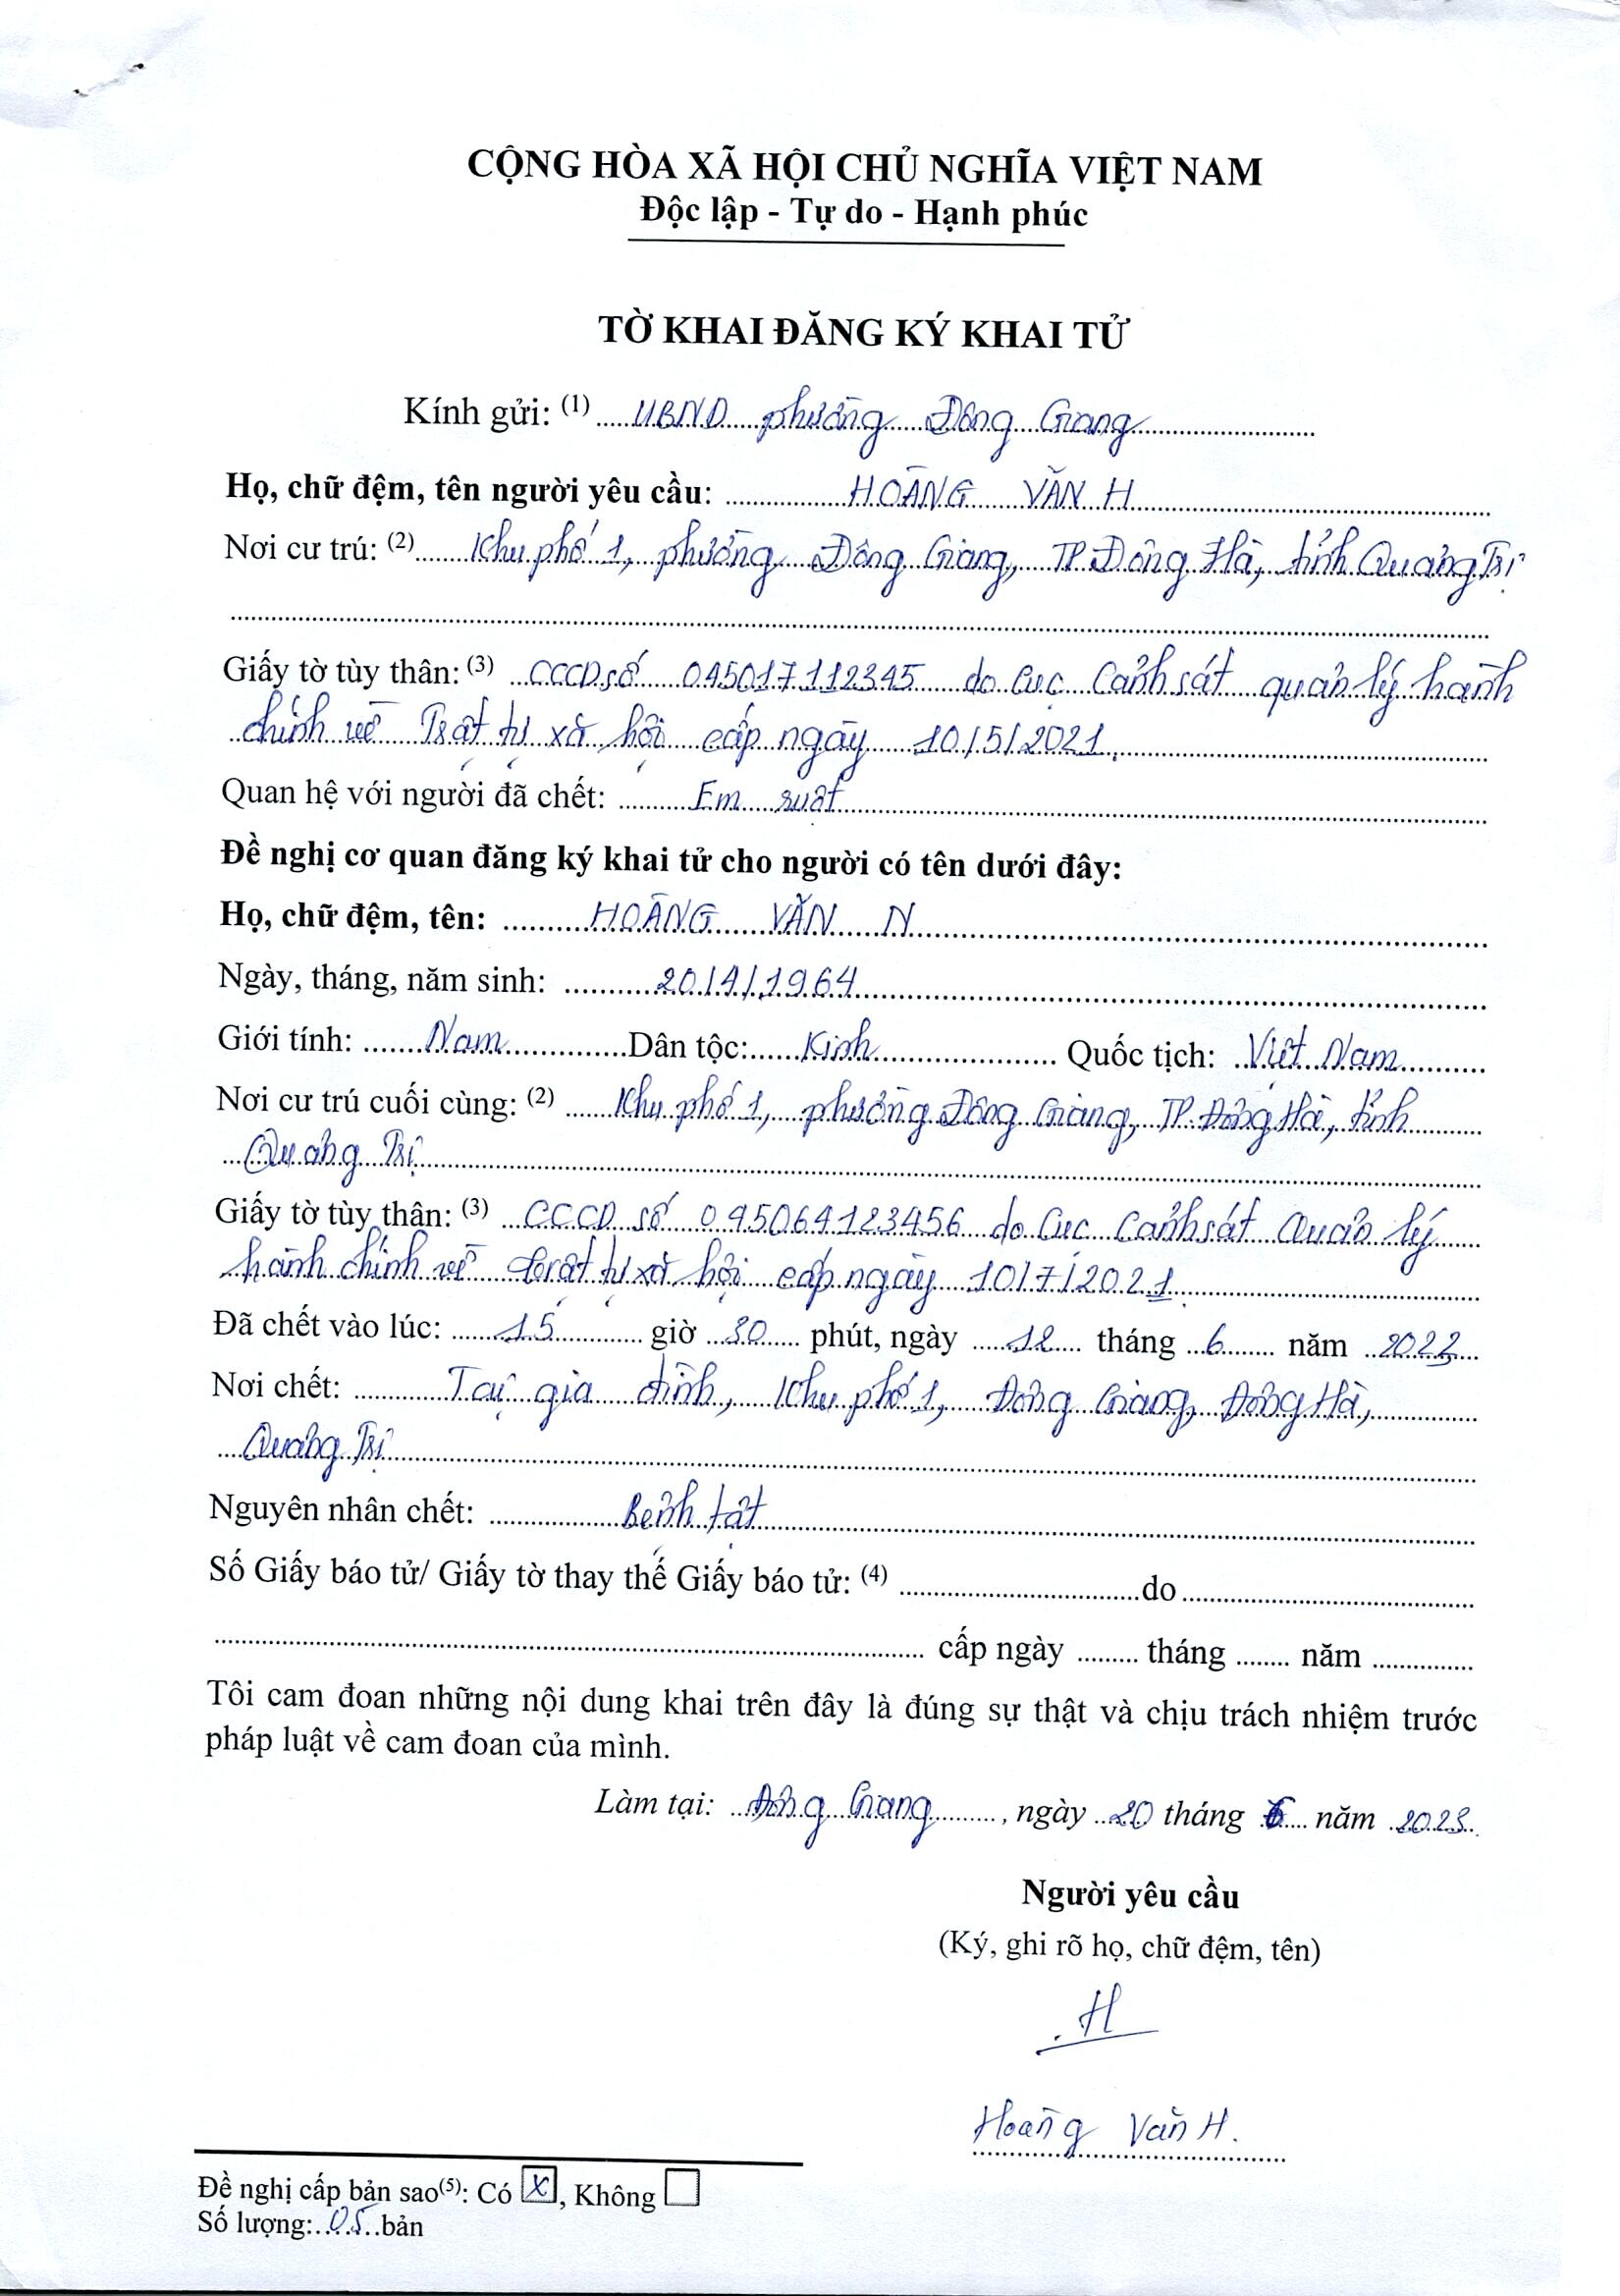 CỘNG HÒA XÃ HỘI CHỦ NGHĨA VIỆT NAM
Độc lập - Tự do - Hạnh phúc
TỜ KHAI ĐĂNG KÝ KHAI TỬ
Kính gửi: (1) UBND phường Đông Giang
Họ, chữ đệm, tên người yêu cầu: HOÀNG VĂN H
Nơi cư trú: (2) Khu phố 1, phường Đông Giang, TP Đông Hà, tỉnh Quảng Trị
Giấy tờ tùy thân: (3) CCCD số 045017112345 do Cục Cảnh sát quản lý hành
chính về Trật tự xã hội cấp ngày 10/5/2021.
Quan hệ với người đã chết: Em ruột
Đề nghị cơ quan đăng ký khai tử cho người có tên dưới đây:
Họ, chữ đệm, tên: HOÀNG VĂN N
Ngày, tháng, năm sinh: 20/4/1964
Giới tính: Nam Dân tộc: Kinh Quốc tịch: Việt Nam
Nơi cư trú cuối cùng: (2) Khu phố 1, phường Đông Giang, TP. Đông Hà, tỉnh
Quảng Trị
Giấy tờ tùy thân: (3) CCCD số 045064123456 do Cục Cảnh sát Quản lý
hành chính về trật tự xã hội cấp ngày 10/7/2021.
Đã chết vào lúc: 15 giờ 30 phút, ngày 12 tháng 6 năm 2023
Nơi chết: Tại gia đình, Khu phố 1, Đông Giang, Đông Hà,
Quảng Trị
Nguyên nhân chết: Bệnh tật
Số Giấy báo tử/ Giấy tờ thay thế Giấy báo tử: (4) do
cấp ngày tháng năm
Tôi cam đoan những nội dung khai trên đây là đúng sự thật và chịu trách nhiệm trước
pháp luật về cam đoan của mình.
Làm tại: Đông Giang, ngày 20 tháng 6 năm 2023.
Người yêu cầu
(Ký, ghi rõ họ, chữ đệm, tên)
H
Hoàng Văn H.
Đề nghị cấp bản sao(5): Có X, Không
Số lượng: 05 bản